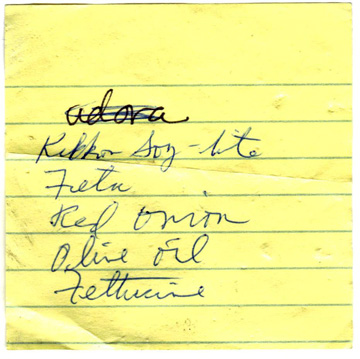 adora
Kikkon Soy-lite
Feta
Red onion
Olive oil
Fettucine